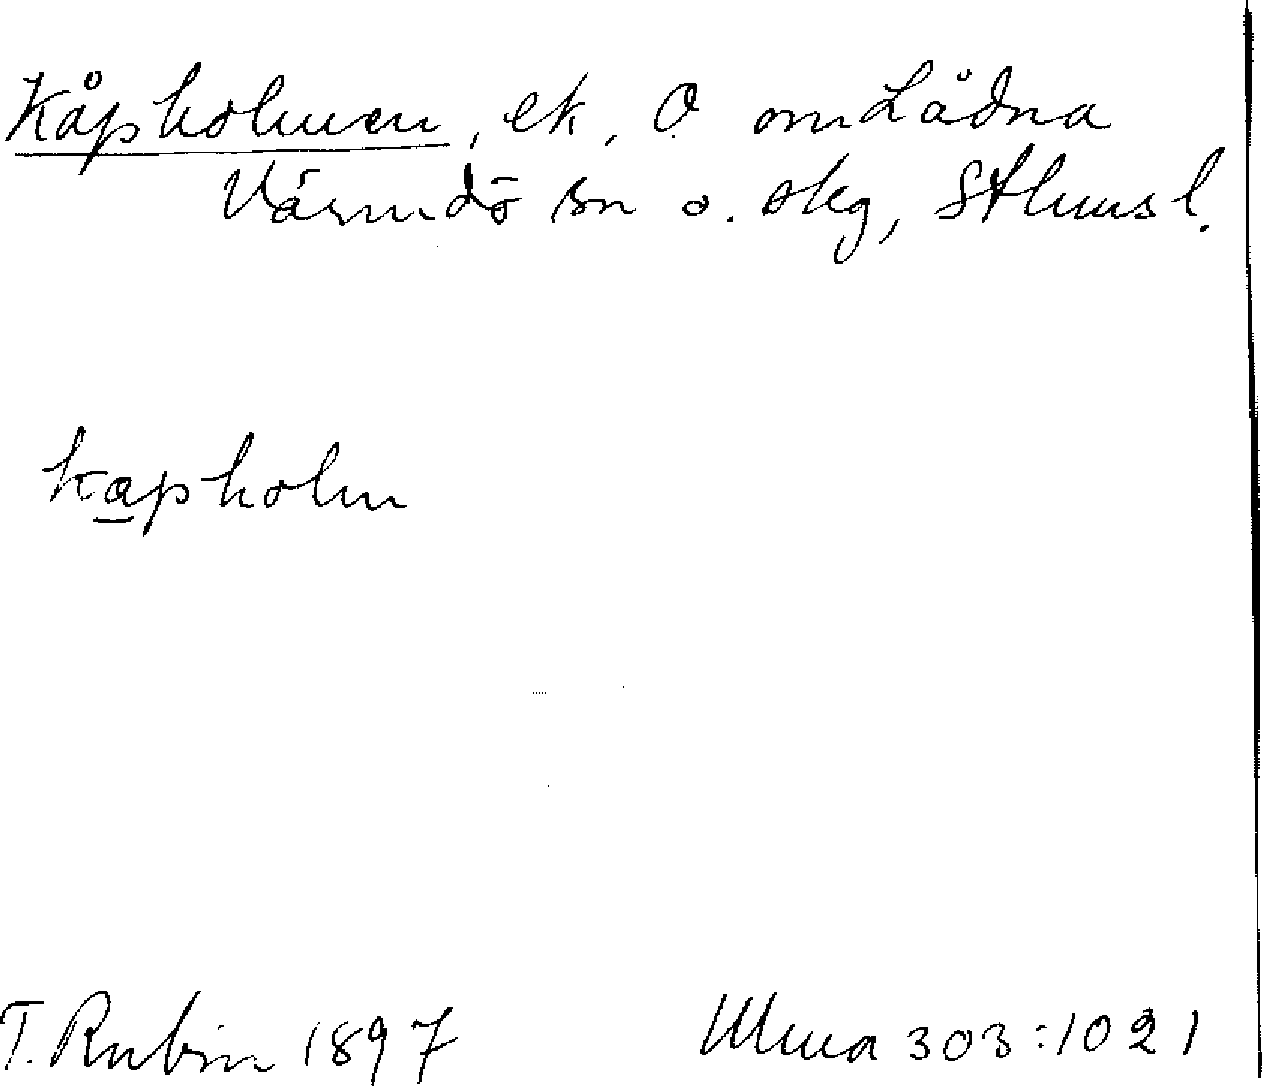 Kåpholmen, ek, Ö. om Lådna
Värmdö sn o. skg, Sthlms l.
kapholm
T. Rubin 1897
Ulma 303:1021